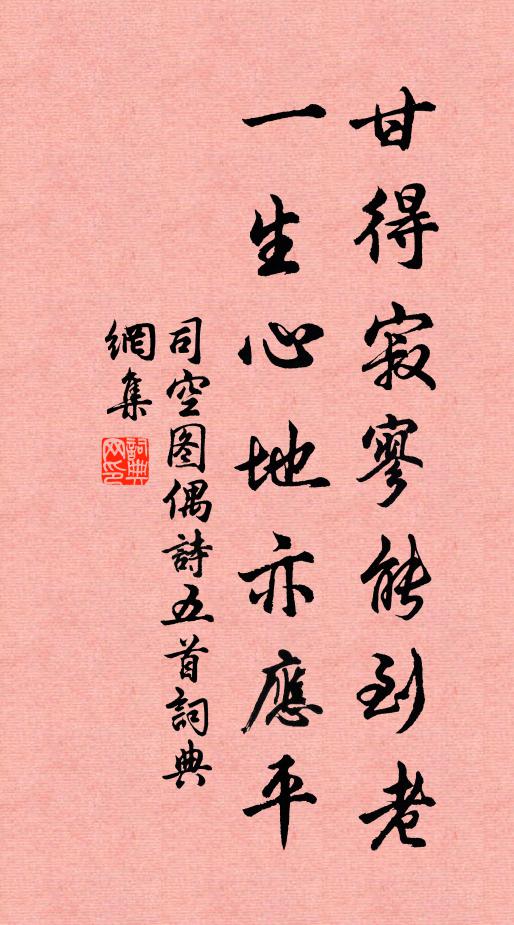 甘得寂寥能到老
一生心地亦應平
司空图偶詩五首詞典
網集
詞典网印